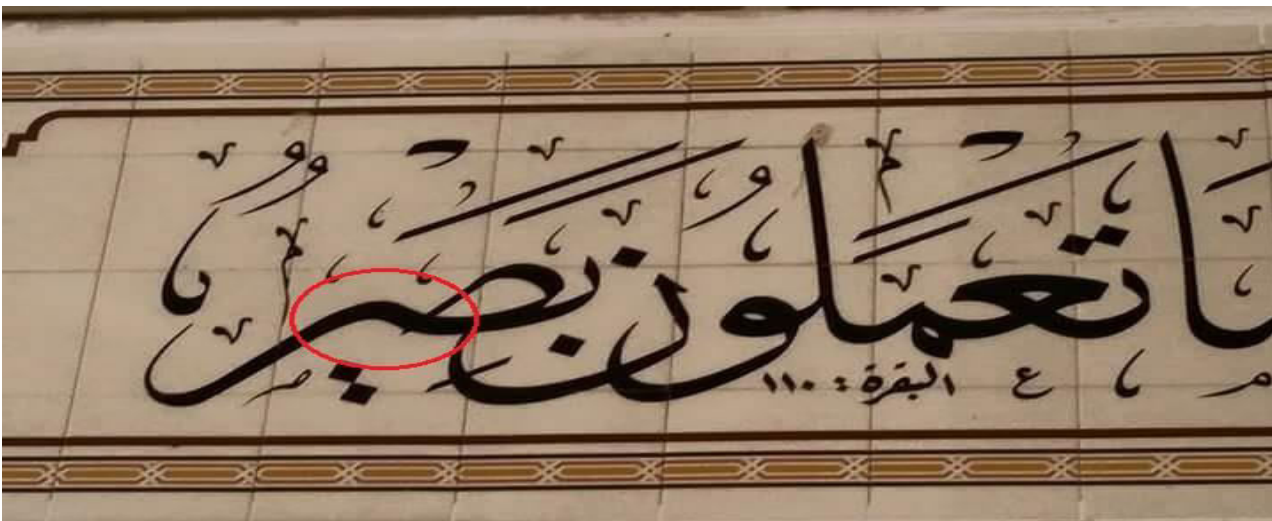 ما تعملون بصيرٌ
البقرة : ١١٠